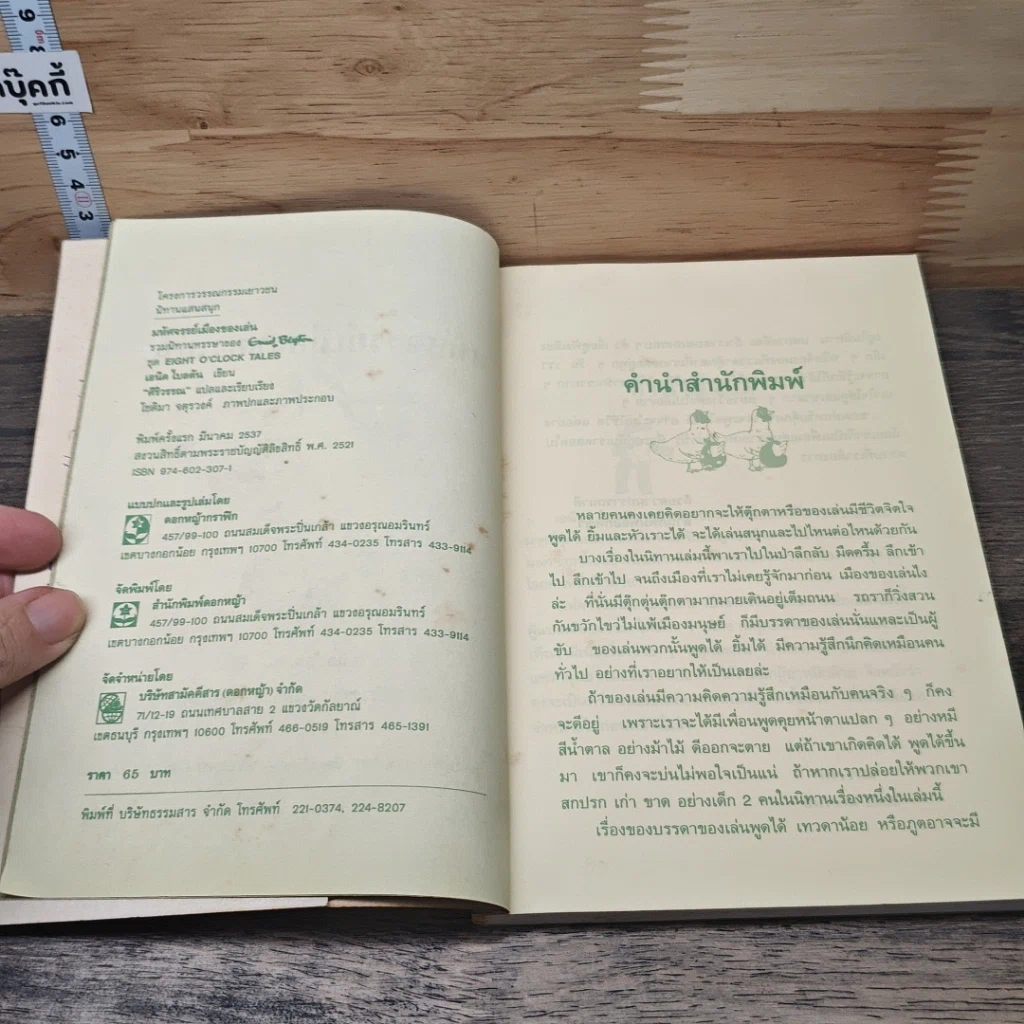 บุ๊คกี้
9
8
6
5
4
3
โครงการวรรณกรรมเยาวชน
นิทานแสนสนุก
มหัศจรรย์เมืองของเล่น
รวมนิทานหรรษาของ Enid Blyton
ชุด EIGHT O'CLOCK TALES
เอนิด ไบลตัน เขียน
"ศิริวรรณ" แปลและเรียบเรียง
โชติมา จตุรวงค์ ภาพปกและภาพประกอบ
พิมพ์ครั้งแรก มีนาคม 2537
สงวนสิทธิ์ตามพระราชบัญญัติลิขสิทธิ์ พ.ศ. 2521
ISBN 974-602-307-1
แบบปกและรูปเล่มโดย
ดอกหญ้ากราฟิก
457/99-100 ถนนสมเด็จพระปิ่นเกล้า แขวงอรุณอมรินทร์
เขตบางกอกน้อย กรุงเทพฯ 10700 โทรศัพท์ 434-0235 โทรสาร 433-9114
จัดพิมพ์โดย
สำนักพิมพ์ดอกหญ้า
457/99-100 ถนนสมเด็จพระปิ่นเกล้า แขวงอรุณอมรินทร์
เขตบางกอกน้อย กรุงเทพฯ 10700 โทรศัพท์ 434-0235 โทรสาร 433-9114
จัดจำหน่ายโดย
บริษัทสามัคคีสาร (ดอกหญ้า) จำกัด
71/12-19 ถนนเทศบาลสาย 2 แขวงวัดกัลยาณ์
เขตธนบุรี กรุงเทพฯ 10600 โทรศัพท์ 466-0519 โทรสาร 465-1391
ราคา 65 บาท
พิมพ์ที่ บริษัทธรรมสาร จำกัด โทรศัพท์ 221-0374, 224-8207
คำนำสำนักพิมพ์
หลายคนคงเคยคิดอยากจะให้ตุ๊กตาหรือของเล่นมีชีวิตจิตใจ
พูดได้ ยิ้มและหัวเราะได้ จะได้เล่นสนุกและไปไหนต่อไหนด้วยกัน
บางเรื่องในนิทานเล่มนี้พาเราไปในป่าลึกลับ มืดครึ้ม ลึกเข้า
ไป ลึกเข้าไป จนถึงเมืองที่เราไม่เคยรู้จักมาก่อน เมืองของเล่นไง
ล่ะ ที่นั่นมีตุ๊กตุ่นตุ๊กตามากมายเดินอยู่เต็มถนน รถราก็วิ่งสวน
กันขวักไขว่ไม่แพ้เมืองมนุษย์ ก็มีบรรดาของเล่นนั่นแหละเป็นผู้
ขับ ของเล่นพวกนั้นพูดได้ ยิ้มได้ มีความรู้สึกนึกคิดเหมือนคน
ทั่วไป อย่างที่เราอยากให้เป็นเลยล่ะ
ถ้าของเล่นมีความคิดความรู้สึกเหมือนกับคนจริง ๆ ก็คง
จะดีอยู่ เพราะเราจะได้มีเพื่อนพูดคุยหน้าตาแปลก ๆ อย่างหมี
สีน้ำตาล อย่างม้าไม้ ดีออกจะตาย แต่ถ้าเขาเกิดคิดได้ พูดได้ขึ้น
มา เขาก็คงจะบ่นไม่พอใจเป็นแน่ ถ้าหากเราปล่อยให้พวกเขา
สกปรก เก่า ขาด อย่างเด็ก 2 คนในนิทานเรื่องหนึ่งในเล่มนี้
เรื่องของบรรดาของเล่นพูดได้ เทวดาน้อย หรือภูตอาจจะมี